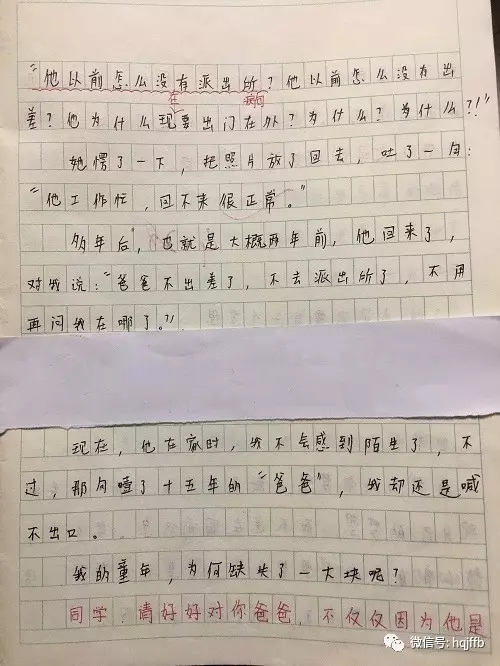 “他以前怎么没有派出所？他以前怎么没有出
在 病句
差？他为什么现要出门在外？为什么？为什么？！”
她愣了一下，把照片放了回去，吐了一句：
“他工作忙，回不来很正常。”
多年后，也就是大概两年前，他回来了，
对我说：“爸爸不出差了，不去派出所了，不用
再问我在哪了。”
现在，他在家时，我不会感到陌生了，不
过，那句噎了十五年的“爸爸”，我却还是喊
不出口。
我的童年，为何缺失了一大块呢？
同学，请好好对你爸爸，不仅仅因为他是
微信号: hqjffb